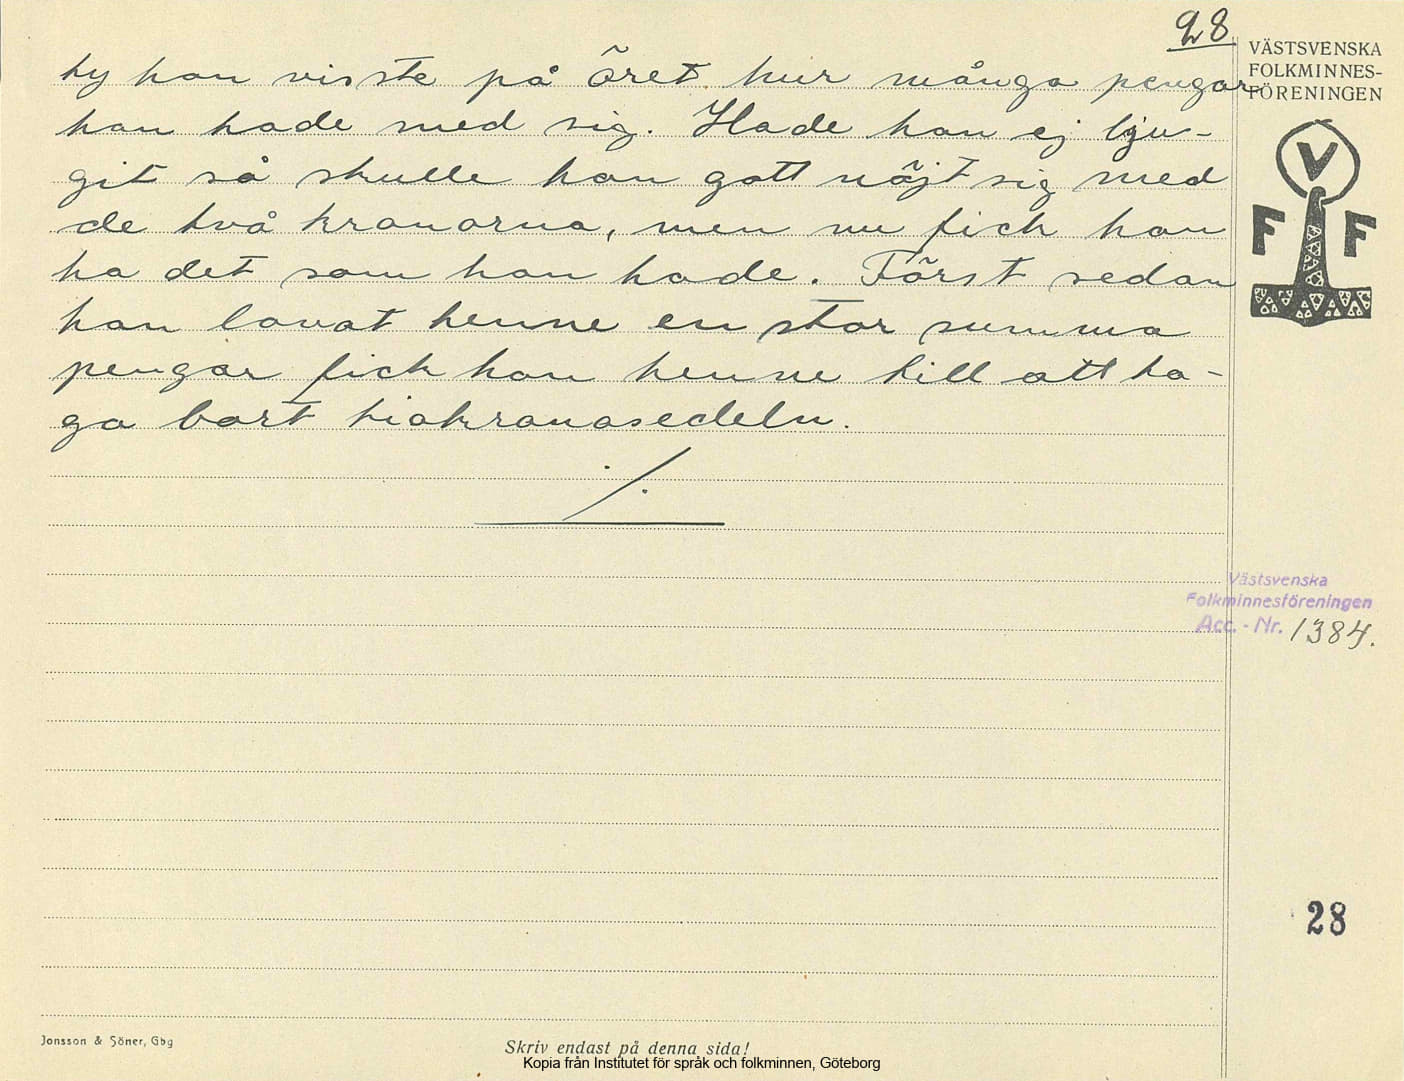 28
VÄSTSVENSKA
FOLKMINNES-
FÖRENINGEN
ty hon visste på öret hur många pengar
han hade med sig. Hade han ej lju-
git så skulle hon gott nöjt sig med
de två kronorna, men nu fick hon
ha det som hon hade. Först sedan
han lovat henne en stor summa
pengar fick han henne till att ta-
ga bort tiokronasedeln.
./.
V
F F
Västsvenska
Folkminnesföreningen
Acc. - Nr. 1384.
28
Jonsson & Söner, Gbg
Skriv endast på denna sida!
Kopia från Institutet för språk och folkminnen, Göteborg